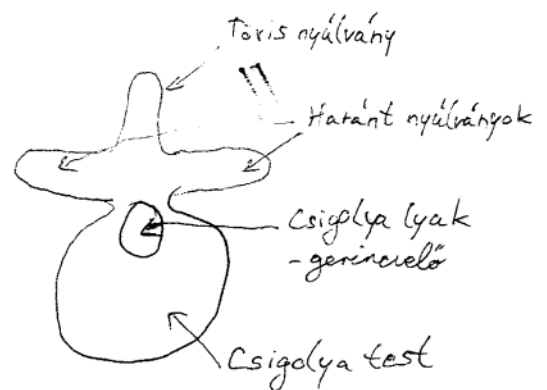 Tövis nyúlvány
Haránt nyúlványok
Csigolya lyuk
- gerincvelő
Csigolya test